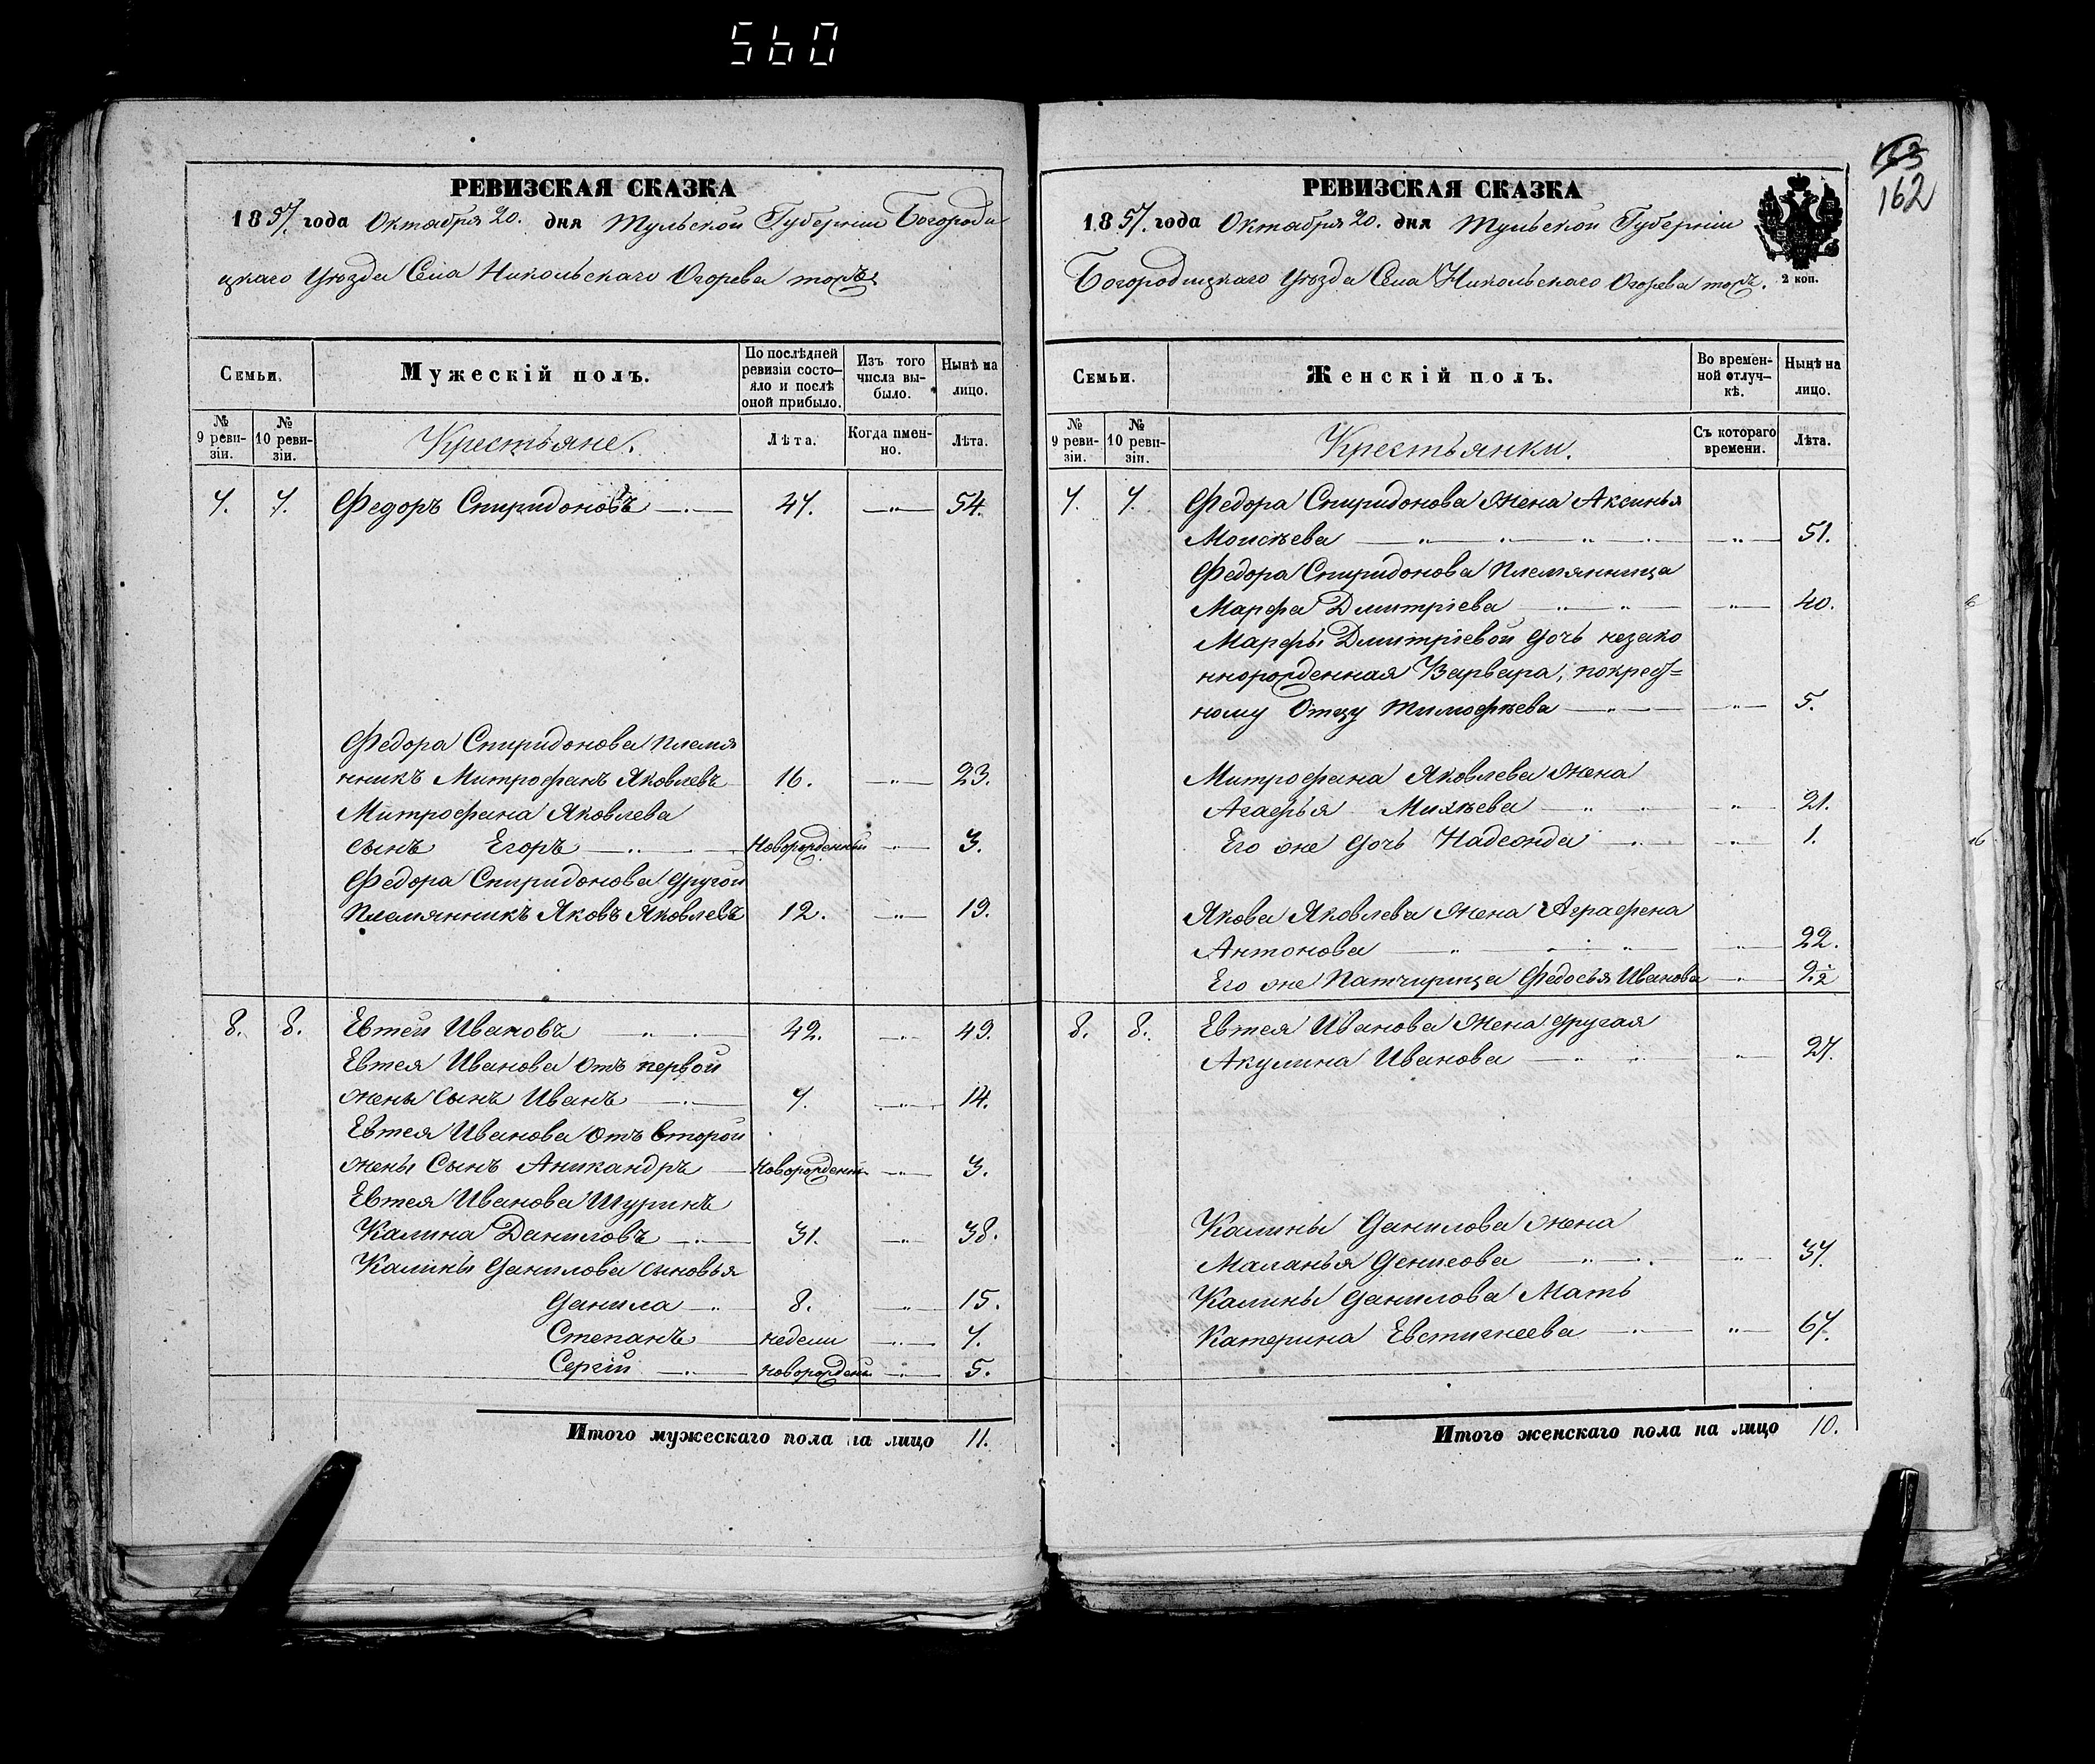 560
РЕВИЗСКАЯ СКАЗКА
1857. года Октября 20. дня Тульской Губерніи Богороди
цкаго Уѣзда Села Никольскаго Огорева тожъ.
Семьи.
Мужескій полъ.
По послѣдней ревизіи состо-
яло и послѣ
оной прибыло.
Изъ того
числа вы-
было.
Нынѣ на
лицо.
№
9 реви-
зіи.
№
10 реви-
зіи.
Крестьяне.
Лѣта.
Когда имен-
но.
Лѣта.
7. 7. Федоръ Спиридоновъ 47. — " — 54.
Федора Спиридонова племя
нникъ Митрофанъ Яковлевъ 16. — " — 23.
Митрофана Яковлева
сынъ Егоръ — " — Новорожденный — " — 3.
Федора Спиридонова другой
Племянникъ Яковъ Яковлевъ 12. — " — 19.
8. 8. Евтей Ивановъ — " — 42. — " — 49.
Евтея Иванова отъ первой
жены сынъ Иванъ — " — 7. — " — 14.
Евтея Иванова отъ второй
жены Сынъ Аникандръ — Новорожденн — " — 3.
Евтея Иванова Шуринъ
Калина Даниловъ — " — 31. — " — 38.
Калины Данилова сыновья
Данила — " — 8. — " — 15.
Степанъ — недели — " — 7.
Сергій — " — новорожден — " — 5.
Итого мужескаго пола на лицо 11.
163
162
РЕВИЗСКАЯ СКАЗКА
1857. года Октября 20. дня Тульской Губерніи
Богородицкаго Уѣзда Села Никольскаго Огорева тожъ.
2 коп.
Семьи.
Женскій полъ.
Во времен-
ной отлуч-
кѣ.
Нынѣ на
лицо.
№
9 реви-
зіи.
№
10 реви-
зіи.
Крестьянки.
Съ котораго
времени.
Лѣта.
7. 7. Федора Спиридонова жена Аксинья
Моисѣева — " — " — " — " — 51.
Федора Спиридонова Племянница
Марфа Дмитріева — " — " — " — 40.
Марфы Дмитріевой дочь незако
ннорожденная Варвара, покрест=
ному Отцу Тимофѣева — " — " — 5.
Митрофана Яковлева жена
Агафья Михѣева — " — " — 21.
Его же дочь Надежда — " — " — 1.
Якова Яковлева жена Аграфена
Антонова — " — " — " — 22.
Его же Патчирица Федосья Иванова — " — 9 ½
8. 8. Евтея Иванова жена другая
Акулина Иванова — " — " — 27.
Калины Данилова жена
Маланья Денисова — " — " — 37.
Калины Данилова Мать
Катерина Евстигнеева — " — " — 67.
Итого женскаго пола на лицо 10.